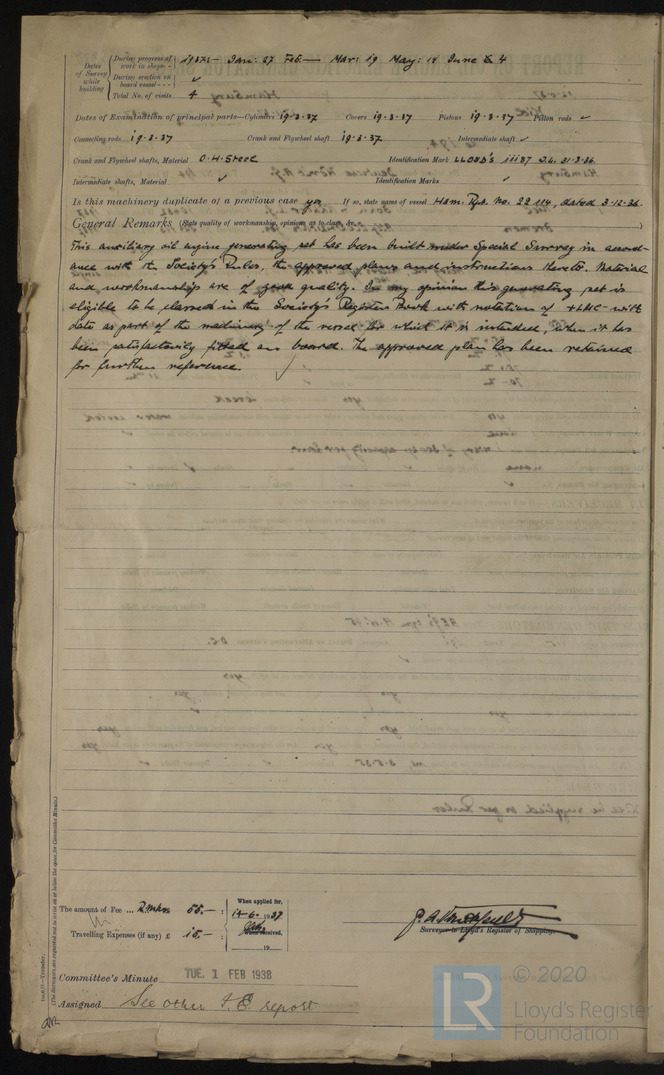 Dates of Survey while building
During progress of work in shops - - 1937:- Jan: 27 Feb.— Mar: 19 May: 14 June 4
During erection on board vessel - - - ✓
Total No. of visits 4
Dates of Examination of principal parts—Cylinders 19-3-37 Covers 19-3-37 Pistons 19-3-37 Piston rods ✓
Connecting rods 19-3-37 Crank and Flywheel shaft 19-3-37 Intermediate shaft ✓
Crank and Flywheel shafts, Material O.H. Steel Identification Mark LLOYD'S
Intermediate shafts, Material ✓ Identification Marks ✓
Is this machinery duplicate of a previous case yes If so, state name of vessel Ham. Rpt. No. 22114, dated 3-12-36.
General Remarks (State quality of workmanship, opinions as to class, &c.
This auxiliary oil engine generating set has been built under Special Survey in accord-
ance with the Society's Rules, the approved plans and instructions thereto. Material
and workmanship are of good quality. In my opinion this generating set is
eligible to be classed in the Society's Register Book with notation of +LMC- with
date as part of the machinery of the vessel for which it is intended, when it has
been satisfactorily fitted on board. The approved plan has been retained
for further reference.
The amount of Fee ... RMks 55.— : When applied for, 14-6- 1937
Travelling Expenses (if any) £ 15.— : When received, 19
Surveyor to Lloyd's Register of Shipping.
Committee's Minute TUE. 1 FEB 1938
Assigned See other F.E. report
(The Surveyors are requested not to write on or below the space for Committee Minute.)
© 2020
LR
Lloyd's Register
Foundation